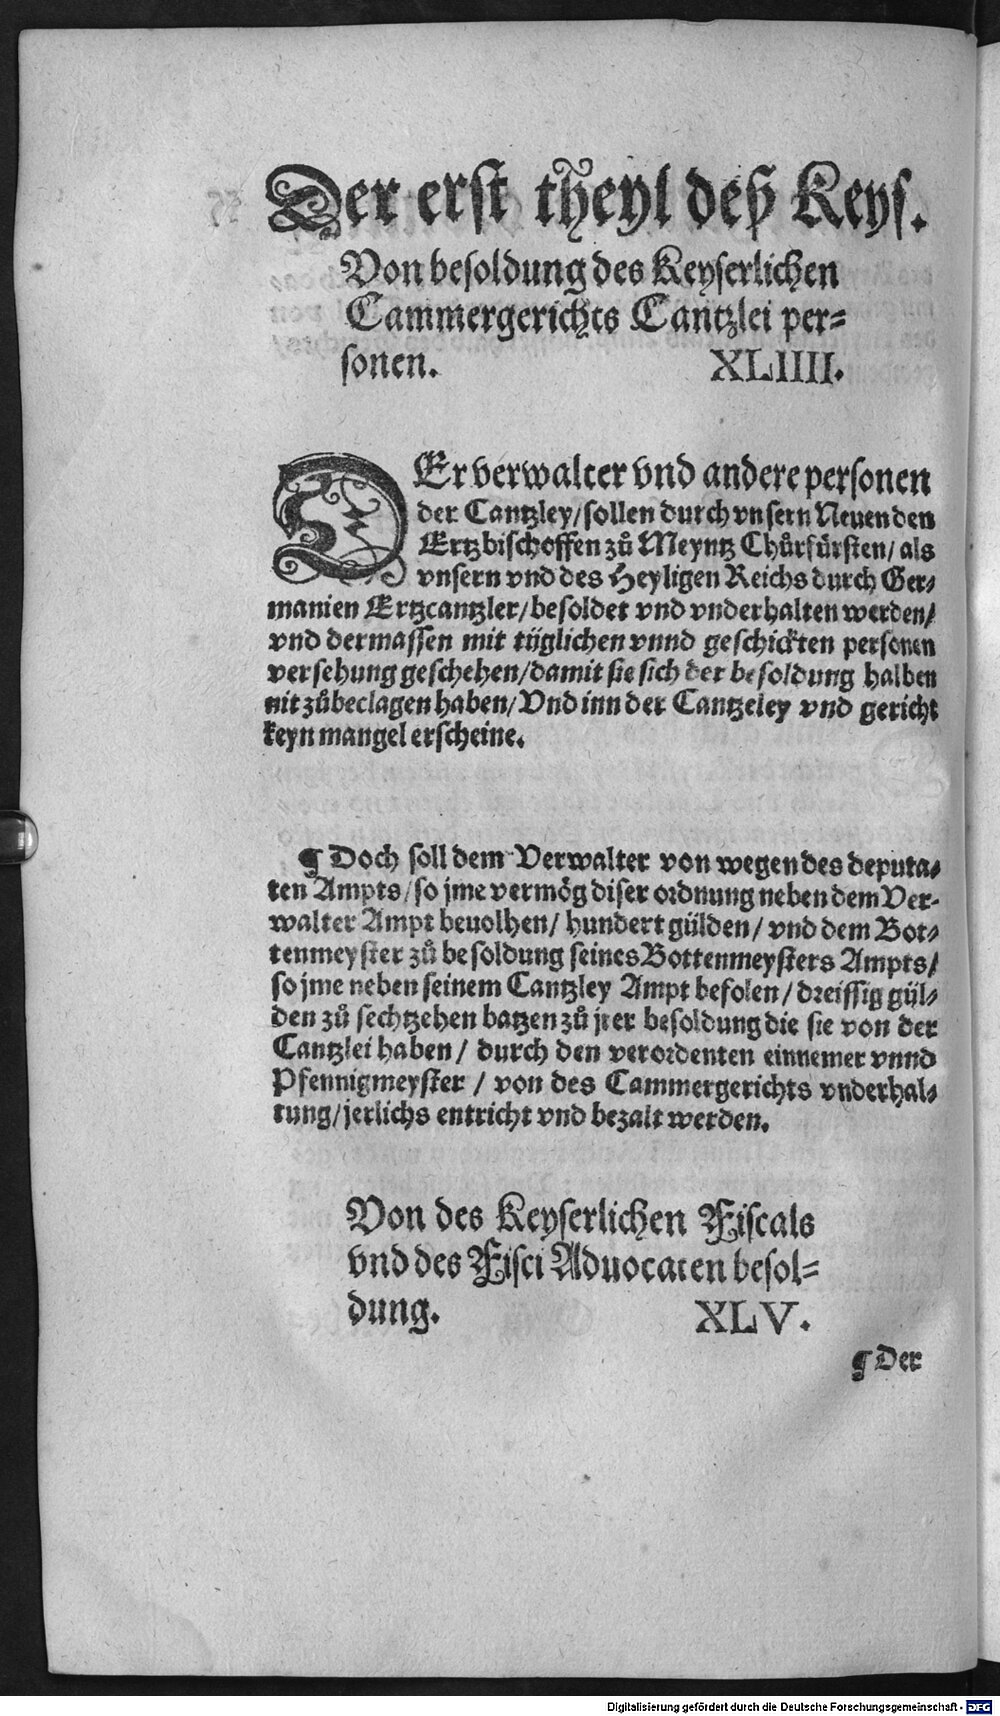 Der erst theyl deß Keys.
Von besoldung des Keyserlichen
Cammergerichts Cantzlei per=
sonen. XLIIII.
DEr verwalter vnd andere personen
der Cantzley/sollen durch vnsern Neuen den
Ertzbischoffen zů Meyntz Chůrfürsten/ als
vnsern vnd des Heyligen Reichs durch Ger=
manien Ertzcantzler/besoldet vnd vnderhalten werden/
vnd dermassen mit tüglichen vnnd geschickten personen
versehung geschehen/damit sie sich der besoldung halben
nit zůbeclagen haben/ Vnd inn der Cantzeley vnd gericht
keyn mangel erscheine.
¶ Doch soll dem Verwalter von wegen des deputa=
ten Ampts/so jme vermög diser ordnung neben dem Ver=
walter Ampt beuolhen/ hundert gülden/ vnd dem Bot=
tenmeyster zů besoldung seines Bottenmeysters Ampts/
so jme neben seinem Cantzley Ampt befolen/ dreissig gül=
den zů sechtzehen batzen zů jrer besoldung die sie von der
Cantzlei haben/ durch den verordenten einnemer vnnd
Pfennigmeyster / von des Cammergerichts vnderhal=
tung/jerlichs entricht vnd bezalt werden.
Von des Keyserlichen Fiscals
vnd des Fisci Aduocaten besol=
dung. XLV.
¶ Der
Digitalisierung gefördert durch die Deutsche Forschungsgemeinschaft - DFG